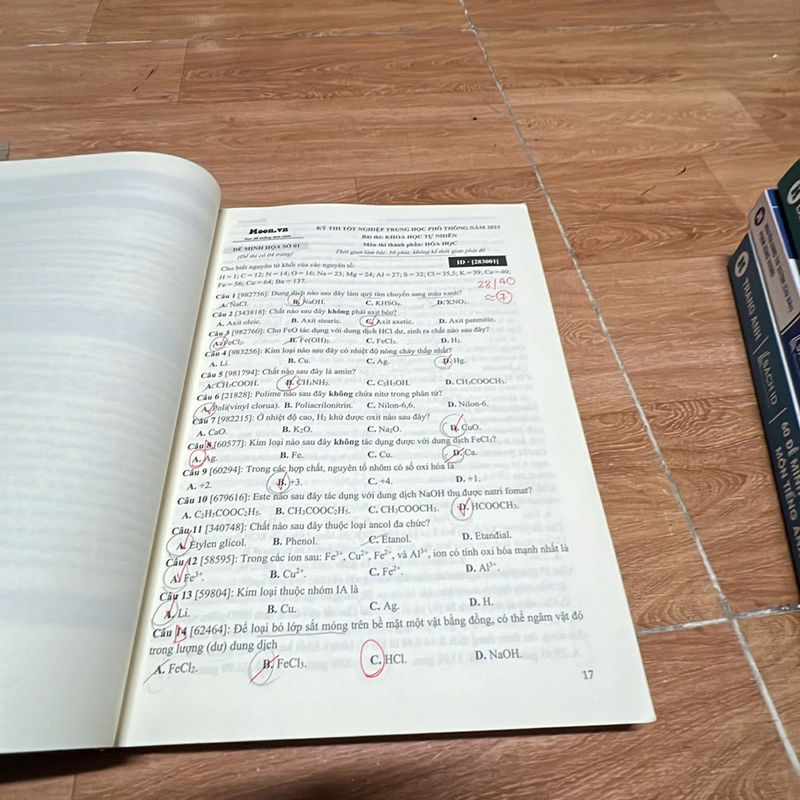 Moon.vn
KỲ THI TỐT NGHIỆP TRUNG HỌC PHỔ THÔNG NĂM 2023
Bài thi: KHOA HỌC TỰ NHIÊN
ĐỀ MINH HỌA SỐ 01
Môn thi thành phần: HÓA HỌC
(Đề thi có 04 trang)
Thời gian làm bài: 50 phút, không kể thời gian phát đề
ID - [283001]
Cho biết nguyên tử khối của các nguyên tố:
H = 1; C = 12; N = 14; O = 16; Na = 23; Mg = 24; Al = 27; S = 32; Cl = 35,5; K = 39; Ca = 40;
Fe = 56; Cu = 64; Ba = 137.
28/40
≈ 7
Câu 1 [982756]: Dung dịch nào sau đây làm quỳ tím chuyển sang màu xanh?
A. NaCl. B. NaOH. C. KHSO₄. D. KNO₃.
Câu 2 [343818]: Chất nào sau đây không phải axit béo?
A. Axit oleic. B. Axit stearic. C. Axit axetic. D. Axit panmitic.
Câu 3 [982760]: Cho FeO tác dụng với dung dịch HCl dư, sinh ra chất nào sau đây?
A. FeCl₂. B. Fe(OH)₂. C. FeCl₃. D. H₂.
Câu 4 [983256]: Kim loại nào sau đây có nhiệt độ nóng chảy thấp nhất?
A. Li. B. Cu. C. Ag. D. Hg.
Câu 5 [981794]: Chất nào sau đây là amin?
A. CH₃COOH. B. CH₃NH₂. C. C₂H₅OH. D. CH₃COOCH₃.
Câu 6 [21828]: Polime nào sau đây không chứa nitơ trong phân tử?
A. Poli(vinyl clorua). B. Poliacrilonitrin. C. Nilon-6,6. D. Nilon-6.
Câu 7 [982215]: Ở nhiệt độ cao, H₂ khử được oxit nào sau đây?
A. CaO. B. K₂O. C. Na₂O. D. CuO.
Câu 8 [60577]: Kim loại nào sau đây không tác dụng được với dung dịch FeCl₃?
A. Ag. B. Fe. C. Cu. D. Ca.
Câu 9 [60294]: Trong các hợp chất, nguyên tố nhôm có số oxi hóa là
A. +2. B. +3. C. +4. D. +1.
Câu 10 [679616]: Este nào sau đây tác dụng với dung dịch NaOH thu được natri fomat?
A. C₂H₅COOC₂H₅. B. CH₃COOC₂H₅. C. CH₃COOCH₃. D. HCOOCH₃.
Câu 11 [340748]: Chất nào sau đây thuộc loại ancol đa chức?
A. Etylen glicol. B. Phenol. C. Etanol. D. Etanđial.
Câu 12 [58595]: Trong các ion sau: Fe³⁺, Cu²⁺, Fe²⁺, và Al³⁺, ion có tính oxi hóa mạnh nhất là
A. Fe³⁺. B. Cu²⁺. C. Fe²⁺. D. Al³⁺.
Câu 13 [59804]: Kim loại thuộc nhóm IA là
A. Li. B. Cu. C. Ag. D. H.
Câu 14 [62464]: Để loại bỏ lớp sắt mỏng trên bề mặt một vật bằng đồng, có thể ngâm vật đó
trong lượng (dư) dung dịch
A. FeCl₂. B. FeCl₃. C. HCl. D. NaOH.
17
TRANG ANH
SACH ID
60 ĐỀ MI
MÔN TIẾNG A